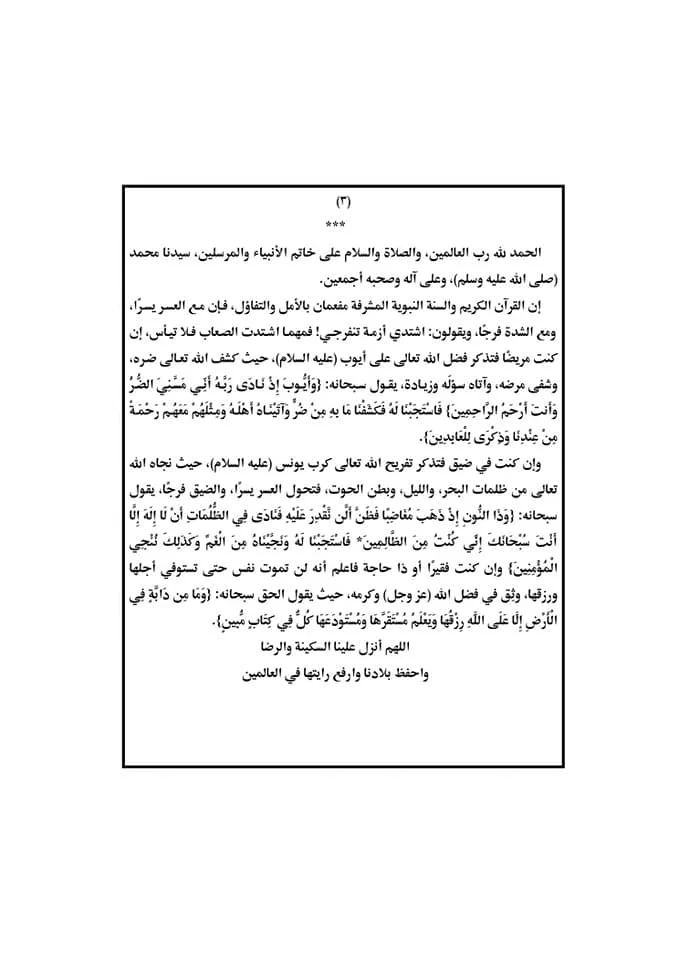 (٣)
***
الحمد لله رب العالمين، والصلاة والسلام على خاتم الأنبياء والمرسلين، سيدنا محمد
(صلى الله عليه وسلم)، وعلى آله وصحبه أجمعين.
إن القرآن الكريم والسنة النبوية المشرفة مفعمان بالأمل والتفاؤل، فإن مع العسر يسرًا،
ومع الشدة فرجًا، ويقولون: اشتدي أزمة تنفرجي! فمهما اشتدت الصعاب فلا تيأس، إن
كنت مريضًا فتذكر فضل الله تعالى على أيوب (عليه السلام)، حيث كشف الله تعالى ضره،
وشفى مرضه، وآتاه سؤله وزيادة، يقول سبحانه: {وَأَيُّوبَ إِذْ نَادَى رَبَّهُ أَنِّي مَسَّنِيَ الضُّرُّ
وَأَنتَ أَرْحَمُ الرَّاحِمِينَ} فَاسْتَجَبْنَا لَهُ فَكَشَفْنَا مَا بِهِ مِنْ ضُرٍّ وَآتَيْنَاهُ أَهْلَهُ وَمِثْلَهُمْ مَعَهُمْ رَحْمَةً
مِنْ عِنْدِنَا وَذِكْرَى لِلْعَابِدِينَ}.
وإن كنت في ضيق فتذكر تفريح الله تعالى كرب يونس (عليه السلام)، حيث نجاه الله
تعالى من ظلمات البحر، والليل، وبطن الحوت، فتحول العسر يسرًا، والضيق فرجًا، يقول
سبحانه: {وَذَا النُّونِ إِذْ ذَهَبَ مُغَاضِبًا فَظَنَّ أَلَّن نَّقْدِرَ عَلَيْهِ فَنَادَى فِي الظُّلُمَاتِ أَنْ لَا إِلَهَ إِلَّا
أَنْتَ سُبْحَانَكَ إِنِّي كُنْتُ مِنَ الظَّالِمِينَ* فَاسْتَجَبْنَا لَهُ وَنَجَّيْنَاهُ مِنَ الْغَمِّ وَكَذَلِكَ نُنْجِي
الْمُؤْمِنِينَ} وإن كنت فقيرًا أو ذا حاجة فاعلم أنه لن تموت نفس حتى تستوفي أجلها
ورزقها، وثق في فضل الله (عز وجل) وكرمه، حيث يقول الحق سبحانه: {وَمَا مِن دَابَّةٍ فِي
الْأَرْضِ إِلَّا عَلَى اللَّهِ رِزْقُهَا وَيَعْلَمُ مُسْتَقَرَّهَا وَمُسْتَوْدَعَهَا كُلٌّ فِي كِتَابٍ مُّبِينٍ}.
اللهم أنزل علينا السكينة والرضا
واحفظ بلادنا وارفع رايتها في العالمين